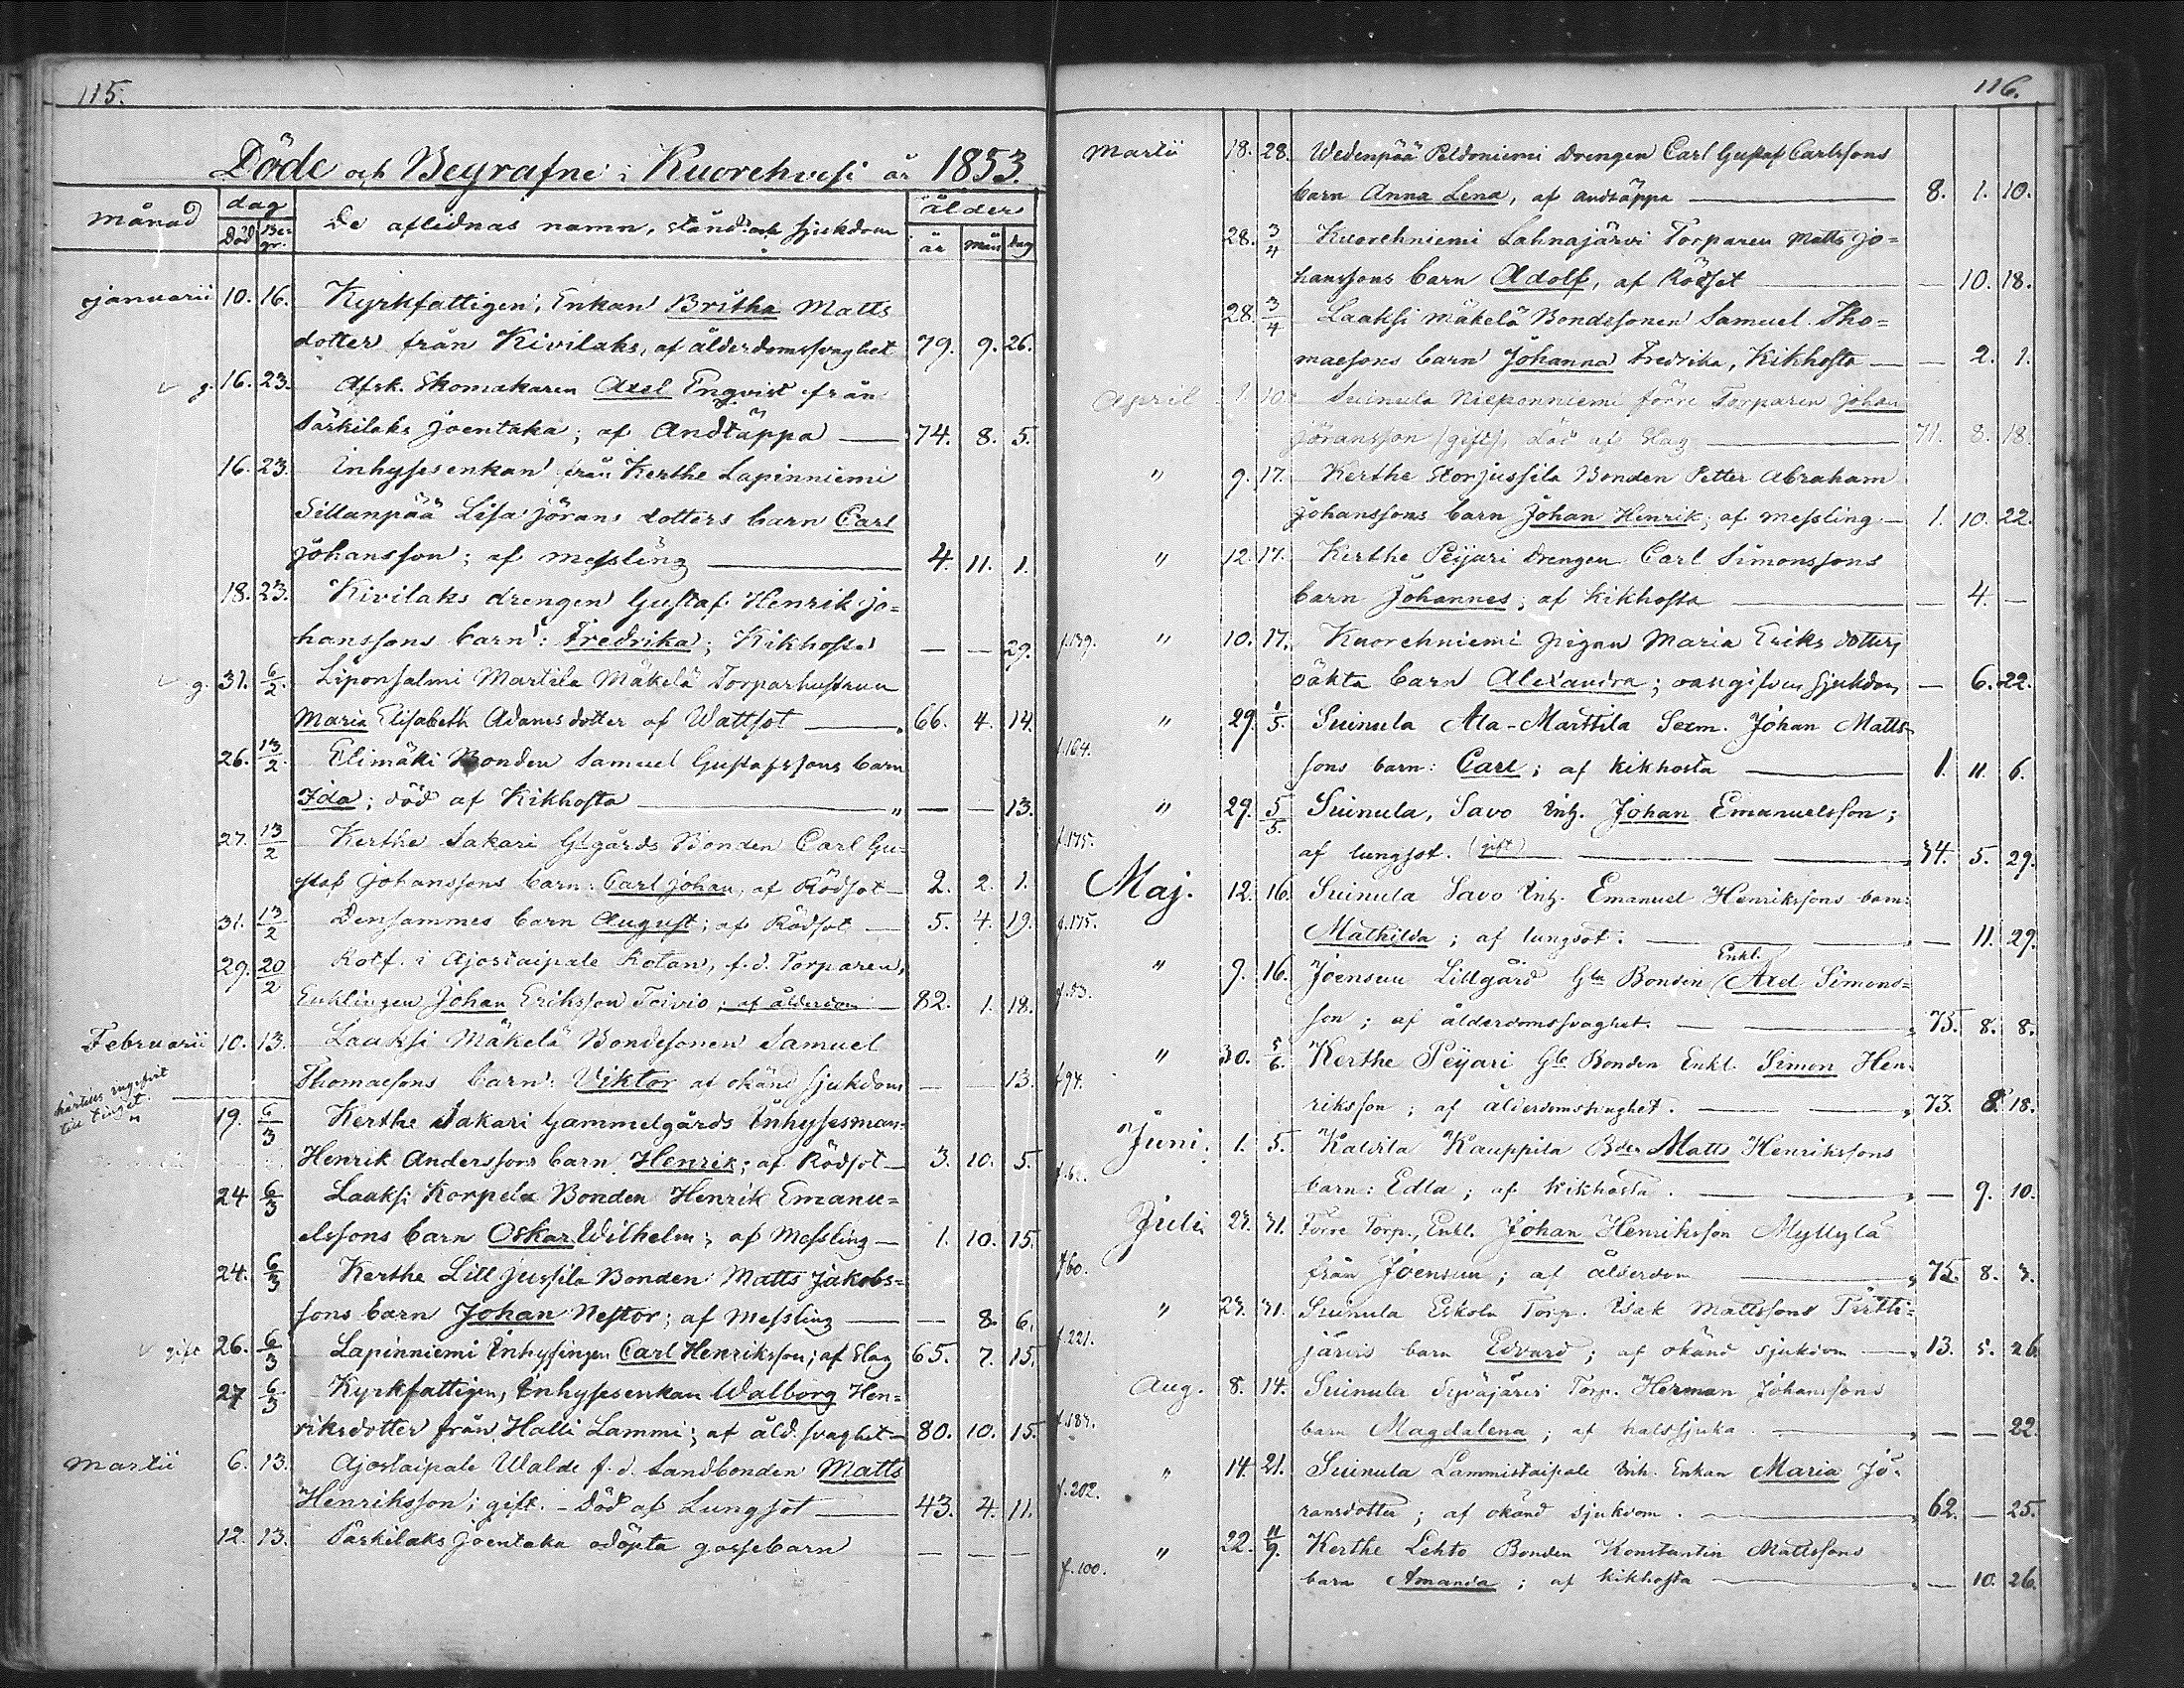 115.
Döde och Begrafne i Kuorehvesi år 1853.
månad dag De aflidnas namn, stånd och sjukdom ålder
Död Be-gr. år mån dag
Januarii 10. 16. Kyrkfattigen, Enkan Britha Matts
dotter från Kivilaks, af ålderdomssvaghet 79. 9. 26.
g. 16. 23. Afsk. Skomakaren Axel Engvist från
Särkilaks Joentaka; af Andtäppa — 74. 8. 5.
16. 23. Inhyses enkan från Kerthe Lapinniemi
Sillanpää Lisa Jörans dotters barn Carl
Johansson; af messling — 4. 11. 1.
18. 23. Kivilaks drengen Gustaf Henrik Jo-
hanssons barn: Fredrika; Kikhosta — — 29.
g. 31. 6/2. Liponsalmi Martila Mäkelä Torparhustrun
Maria Elisabeth Adams dotter af Wattsot — 66. 4. 14.
26. 13/2. Elimäki Bonden Samuel Gustafssons barn
Ida; död af Kikhosta — „ — — 13.
27. 13/2 Kerthe Sakari Glgårds Bonden Carl Gu-
staf Johanssons barn: Carl Johan, af Rödsot — 2. 2. 1.
31. 13/2 Densammes barn August; af Rödsot — 5. 4. 19.
29. 20/2 Rotf. i Ajostaipale Kotan, f.d. Torparen,
Enklingen Johan Eriksson Toivio; af ålderdom — 82. 1. 18.
Februarii 10. 13. Laaksi Mäkelä Bondesonen Samuel
Thomaesons barn: Viktor af okänd sjukdom — — 13.
härtills uppgifvit
till tinget.
19. 6/3 Kerthe Sakari Gammelgårds Inhysesman-
Henrik Anderssons barn Henrik; af Rödsot — 3. 10. 5.
24 6/3 Laaksi Korpela Bonden Henrik Emanu-
elssons barn Oskar Wilhelm; af Messling — 1. 10. 15.
24. 6/3 Kerthe Lill Jussila Bonden Matts Jakobs-
sons barn Johan Nestor; af Messling — — 8. 6.
gift 26. 6/3 Lapinniemi Inhysingen Carl Henriksson; af Slag 65. 7. 15.
27 6/3 Kyrkfattigen, Inhyses enkan Walborg Hen-
riksdotter från Halli Lammi; af åld. svaghet — 80. 10. 15.
Martii 6. 13. Ajostaipale Walde f.d. Landbonden Matts
Henriksson; gift. — Död af Lungsot — 43. 4. 11.
12. 13. Särkilaks Joentaka odöpta gossebarn — — —
116.
Martii 18. 28. Wedenpää Peldoniemi drengen Carl Gustaf Carlssons
barn Anna Lena, af andtäppa — 8. 1. 10.
28. 3/4 Kuorehniemi Lahnajärvi Torparen Matts Jo-
hanssons barn Adolf, af Rödsot — — 10. 18.
28. 3/4 Laaksi Mäkelä Bondesonen Samuel Tho-
maesons barn Johanna Fredrika, Kikhosta — — 2. 1.
April 1. 10. Suinula Nieponniemi förre Torparen Johan
Jöransson (gift), död af Slag — 71. 8. 18.
„ 9. 17. Kerthe Storjussila Bonden Petter Abraham
Johanssons barn Johan Henrik; af messling — 1. 10. 22.
„ 12. 17. Kerthe Peijari drengen Carl Simonssons
barn Johannes; af Kikhosta — — 4. —
f.139. „ 10. 17. Kuorehniemi pigan Maria Eriks dotters
oäkta barn Alexandra; oangifven sjukdom — 6. 22.
„ 29. 1/5. Suinula Ala-Marttila Sexm. Johan Matts-
f.164. sons barn: Carl; af Kikhosta — 1. 11. 6.
„ 29. 5/5. Suinula, Savo Inh. Johan Emanuelsson;
f.175. af lungsot. (gift) — 34. 5. 29.
Maj. 12. 16. Suinula Savo Inh. Emanuel Henrikssons barn:
f.175. Mathilda; af lungsot. — — 11. 29.
„ 9. 16. Joensuu Lillgård Gla Bonden Enkl. Axel Simons-
f.53. son; af ålderdomssvaghet. — 75. 8. 8.
„ 30. 5/6. Kerthe Peijari Gle Bonden Enkl. Simon Hen-
f.94. riksson; af ålderdomssvaghet. — 73. 8. 18.
Juni. 1. 5. Kalvila Kauppila Bden Matts Henrikssons
barn: Edla; af Kikhosta. — — 9. 10.
Juli 23. 31. Förre Torp., Enkl. Johan Henriksson Myllylä
f60. från Joensuu; af ålderdom — 75. 8. 3.
„ 23. 31. Suinula Eskola Torp. Isak Mattssons Pirtti-
f.221. järvis barn Edvard; af okänd sjukdom — 13. 5. 26.
Aug. 8. 14. Suinula Syväjärvi Torp. Herman Johanssons
f.183. barn Magdalena; af halssjuka. — — — 22.
„ 14. 21. Suinula Lammistaipale Inh. Enkan Maria Jö-
f.202. ransdotter; af okänd sjukdom. — 62. — 25.
„ 22. 11/9. Kerthe Lehto Bonden Konstantin Mattssons
f.100. barn Amanda; af Kikhosta — — 10. 26.